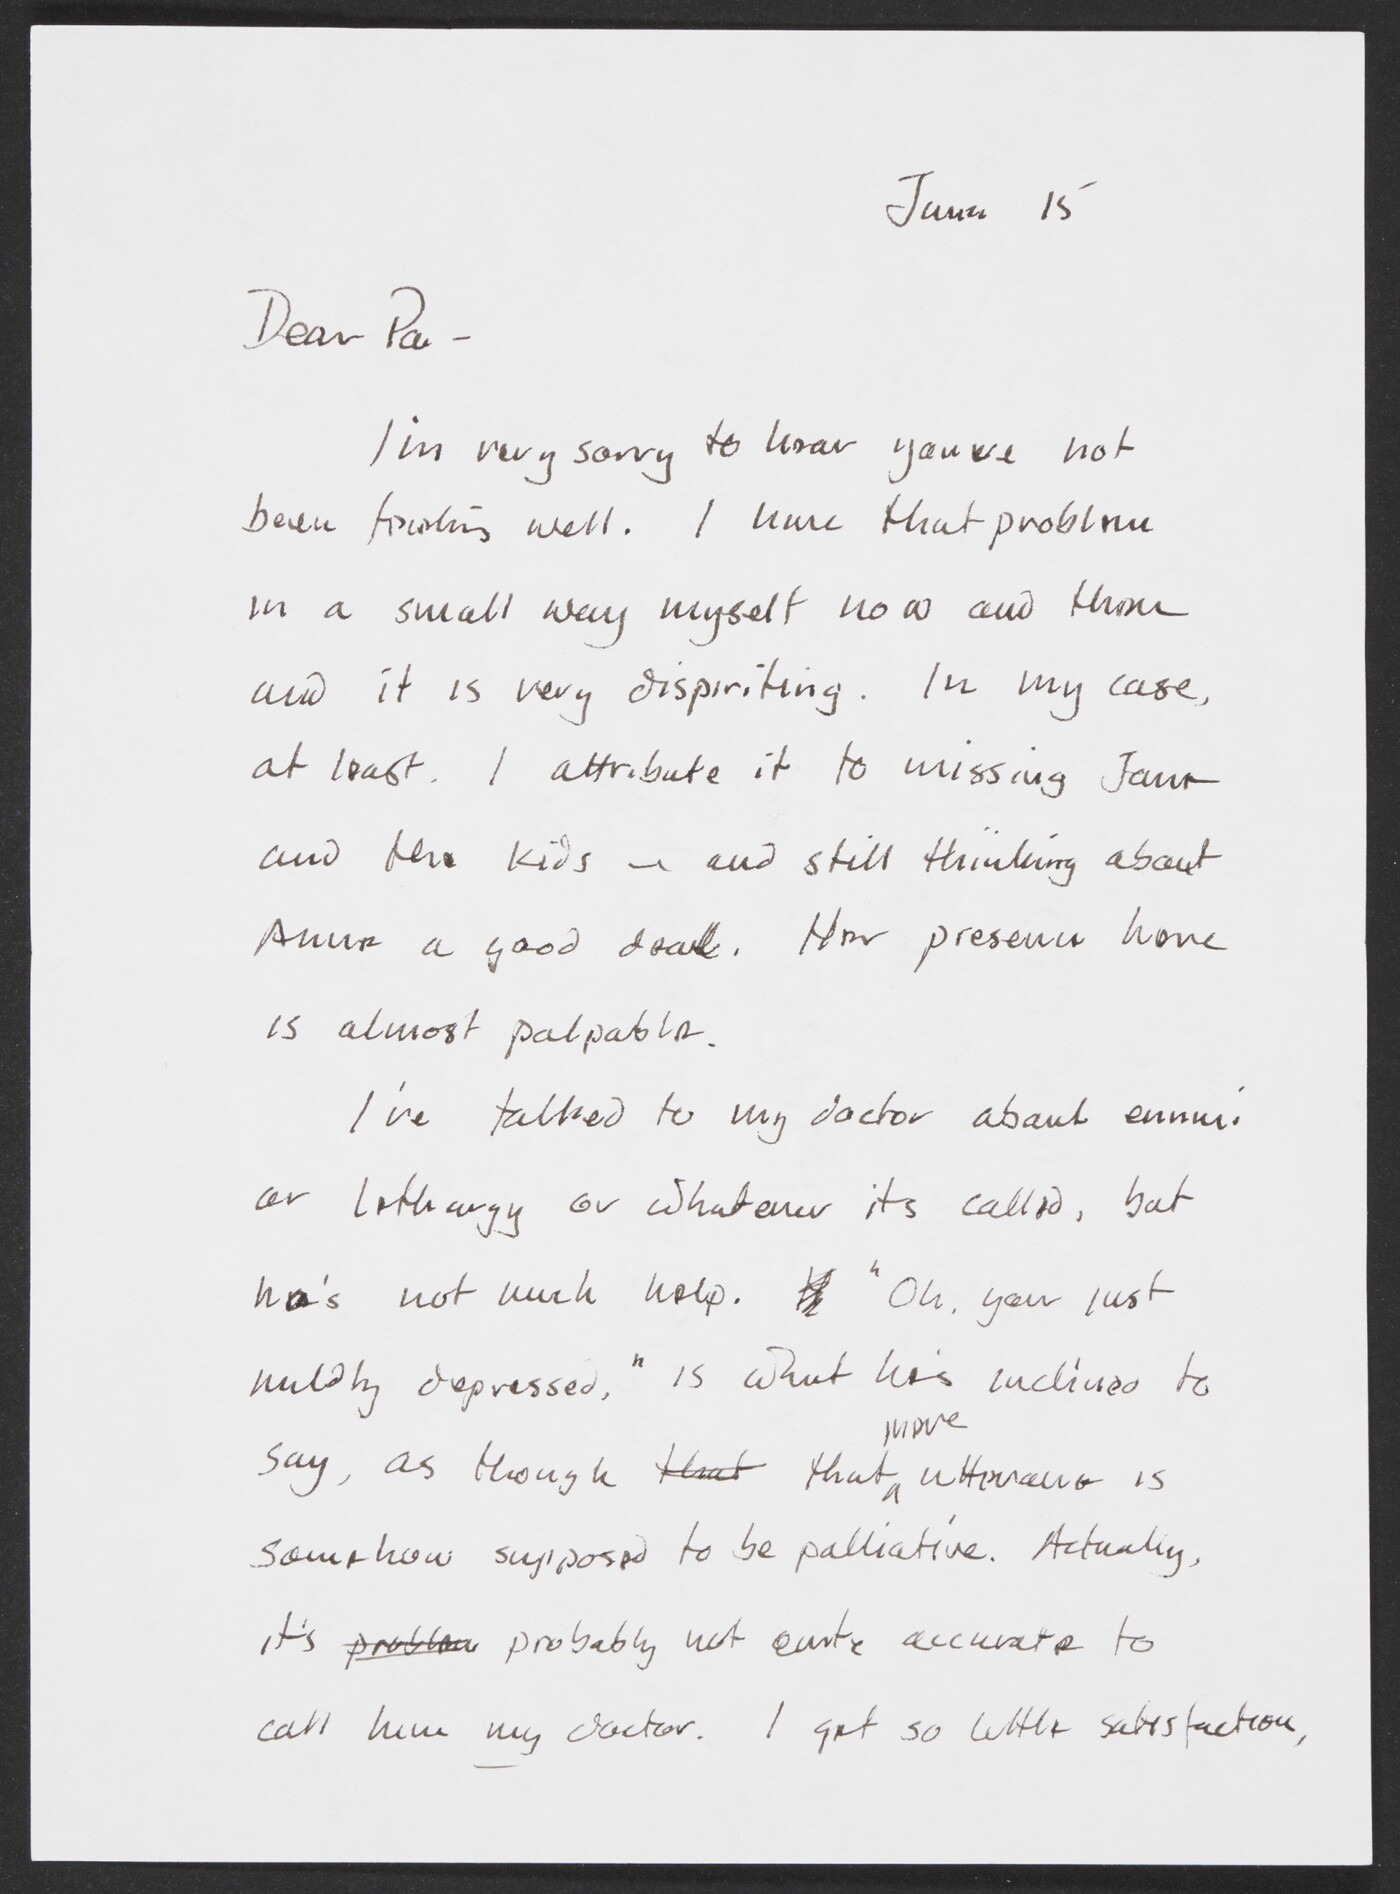 June 15
Dear Pa -
I'm very sorry to hear you've not
been feeling well. I have that problem
in a small way myself now and then
and it is very dispiriting. In my case,
at least. I attribute it to missing Jane
and the kids — and still thinking about
Anne a good deal. Her presence here
is almost palpable.
I've talked to my doctor about ennui
or lethargy or whatever its called, but
he's not much help. "Oh, your just
mildly depressed," is what he's inclined to
say, as though that that more utterance is
somehow supposed to be palliative. Actually,
it's problem probably not quite accurate to
call him my doctor. I get so little satisfaction,